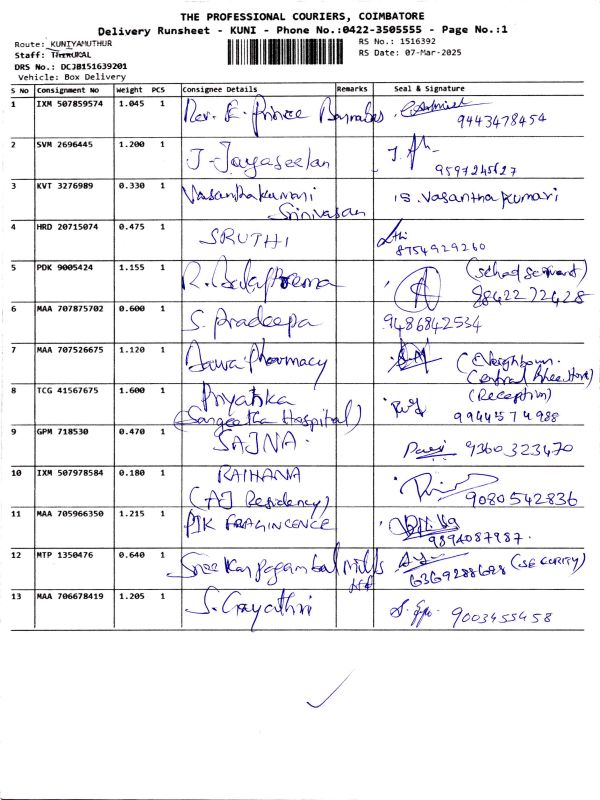 THE PROFESSIONAL COURIERS, COIMBATORE
Delivery Runsheet - KUNI - Phone No.:0422-3505555 - Page No.:1
Route: KUNIYAMUTHUR
RS No.: 1516392
Staff:
RS Date: 07-Mar-2025
DRS No.: DCJB151639201
Vehicle: Box Delivery
S No Consignment No Weight PCS Consignee Details Remarks Seal & Signature
1 IXM 507859574 1.045 1 Rev. E. Prince Barnabas 9443478454
2 SVM 2696445 1.200 1 J-Jayaseelan 9597245627
3 KVT 3276989 0.330 1 Vasanthakumari S. Vasanthakumari
Srinivasan
4 HRD 20715074 0.475 1 SRUTHI 8754929260
5 PDK 9005424 1.155 1 R. (School servant)
9842272428
6 MAA 707875702 0.600 1 S. Pradeepa 9486842534
7 MAA 707526675 1.120 1 Pharmacy (Neighbour
Central
8 TCG 41567675 1.600 1 Priyanka (Reception)
(Sangeetha Hospital) 9944574988
9 GPM 718530 0.470 1 SAJNA. 9360323470
10 IXM 507978584 0.180 1 RAIHANA
(AJ Residency) 9080542836
11 MAA 705966350 1.215 1 PJK FRAGINCENCE
9894087987.
12 MTP 1350476 0.640 1 Sree Karpagambal Mills (SECURITY)
6369288698
13 MAA 706678419 1.205 1 S. Gayathri 9003455458